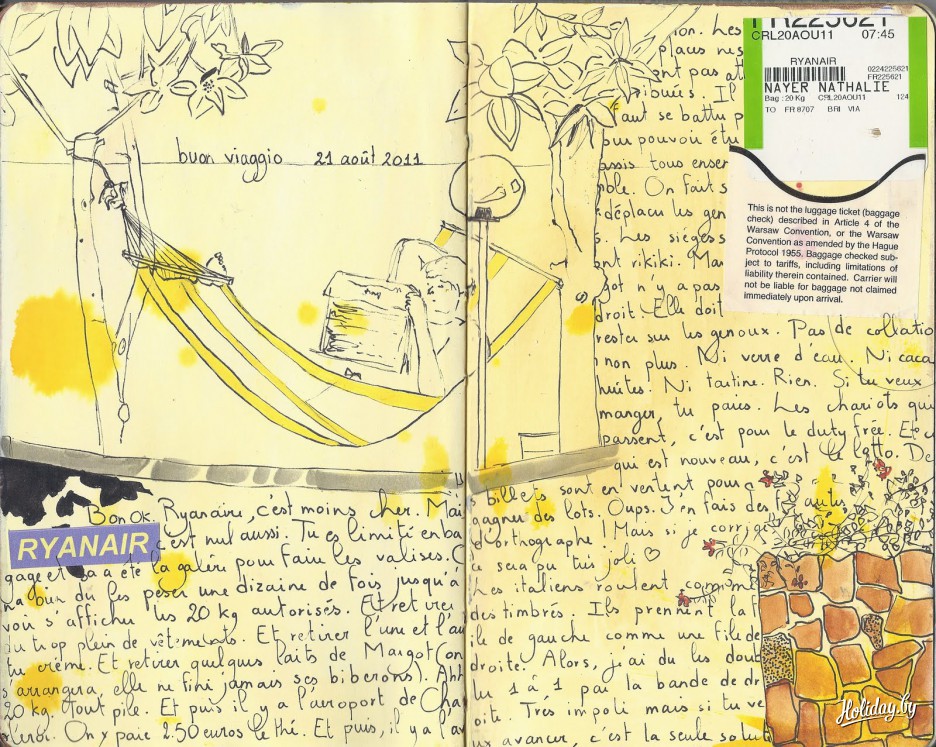 buon viaggio 21 août 2011
RYANAIR
Bon Ok. Ryanaire, c'est moins cher. Mai
c'est nul aussi. Tu es limité en ba
gage et ça a été la galère pour faire les valises.
du les peser une dizaine de fois jusqu'à
voir s'afficher les 20 kg autorisés. Et retirer
du trop plein de vêtements. Et retirer l'une et l'au
tre crème. Et retirer quelques laits de Margot (on
s'arrangera, elle ne fini jamais ses biberons). Ahh
20 kg. Tout pile. Et puis il y a l'aeroport de Cha
rleroi. On y paie 2.50 euros le thé. Et puis, il y a l'av
ion. Les
places nes
ont pas att
ribuées. Il
faut se battu p
our pouvoir êtu
assis tous enser
ble. On fait s
déplacer les gen
s. Les sièges s
ont rikiki. Mar
got n'y a pas
droit. Elle doit
rester sur les genoux. Pas de collatio
n non plus. Ni verre d'eau. Ni caca
huètes. Ni tartine. Rien. Si tu veux
manger, tu paies. Les chariots qui
passent, c'est pour le duty free. Et c
qui est nouveau, c'est le lotto. De
billets sont en ventent pour
gagner des lots. Oups. J'en fais des fautes
d'orthographe! Mais si je corrige
ce sera pu très joli ♡
Les italiens roulent comme
des timbrés. Ils prennent la f
ile de gauche comme une file de
droite. Alors, j'ai du les doub
ler 1 à 1 par la bande de dr
oite. Tres impoli mais si tu ve
ux avancer, c'est la seule solut
FR225621
CRL20AOU11 07:45
RYANAIR
0224225621
FR225621
NAYER NATHALIE
Bag : 20 Kg CRL20AOU11 124
TO FR 8707 BRI VIA
This is not the luggage ticket (baggage
check) described in Article 4 of the
Warsaw Convention, or the Warsaw
Convention as amended by the Hague
Protocol 1955. Baggage checked sub-
ject to tariffs, including limitations of
liability therein contained. Carrier will
not be liable for baggage not claimed
immediately upon arrival.
Holiday.by